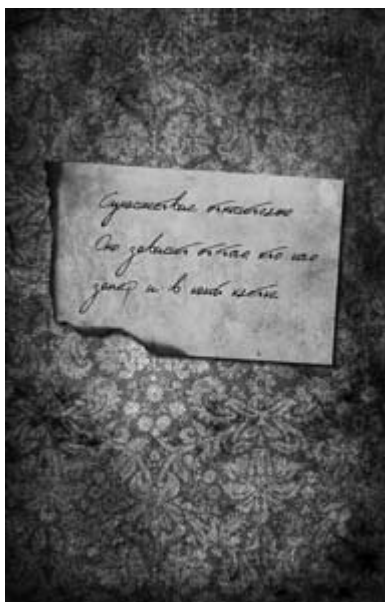 Сумасшествие относительно
Оно зависит оттого кто нас
запер и в какой клетке